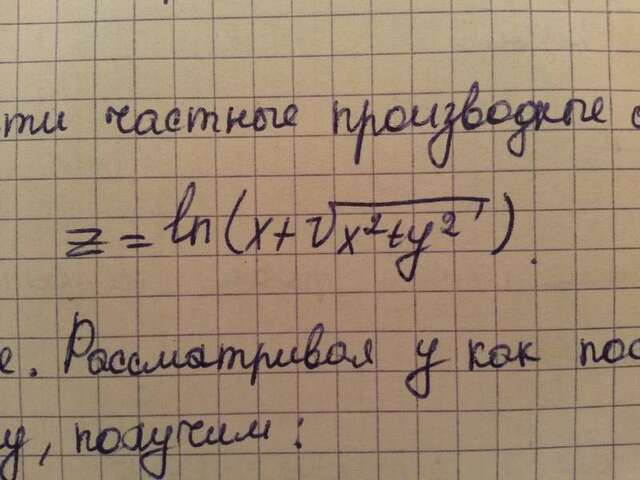 ти частные производные
z = ln(x+√x²+y²).
е. Рассматривая y как пос
у, получим: